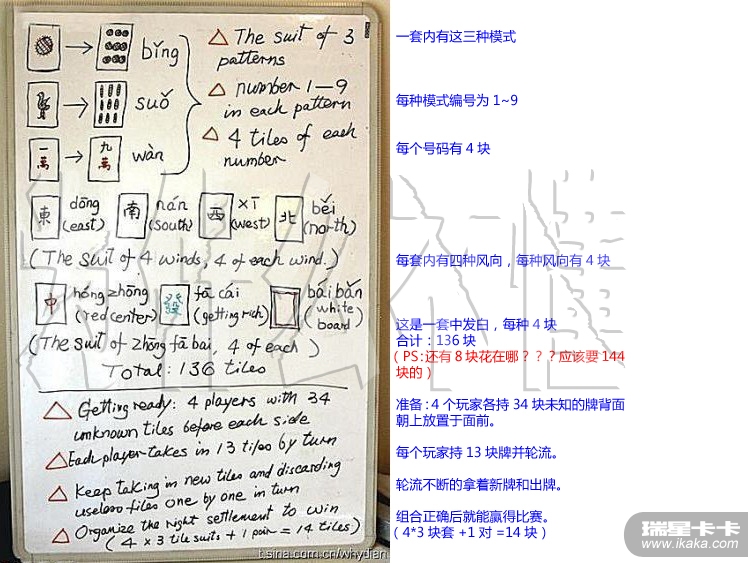 bǐng
suǒ
一萬
九萬
wàn
△ The suit of 3
patterns
△ number 1—9
in each pattern
△ 4 tiles of each
number
東 dōng
(east)
南 nán
(south)
西 xī
(west)
北 běi
(north)
(The suit of 4 winds, 4 of each wind.)
中 hóng zhōng
(red center)
發 fā cái
(getting rich)
bái bǎn
(white
board)
(The suit of zhōng fā bai, 4 of each)
Total: 136 tiles
△ Getting ready: 4 players with 34
unknown tiles before each side
△ Each player takes in 13 tiles by turn
△ Keep taking in new tiles and discarding
useless tiles one by one in turn
△ Organize the right settlement to win
(4 x 3 tile suits + 1 pair = 14 tiles)
t.sina.com.cn/whydian
一套内有这三种模式
每种模式编号为 1~9
每个号码有 4 块
每套内有四种风向，每种风向有 4 块
这是一套中发白，每种 4 块
合计：136 块
（PS:还有 8 块花在哪？？？应该要 144
块的）
准备：4 个玩家各持 34 块未知的牌背面
朝上放置于面前。
每个玩家持 13 块牌并轮流。
轮流不断的拿着新牌和出牌。
组合正确后就能赢得比赛。
（4*3 块套 +1 对 =14 块）
瑞星卡卡
www.ikaka.com